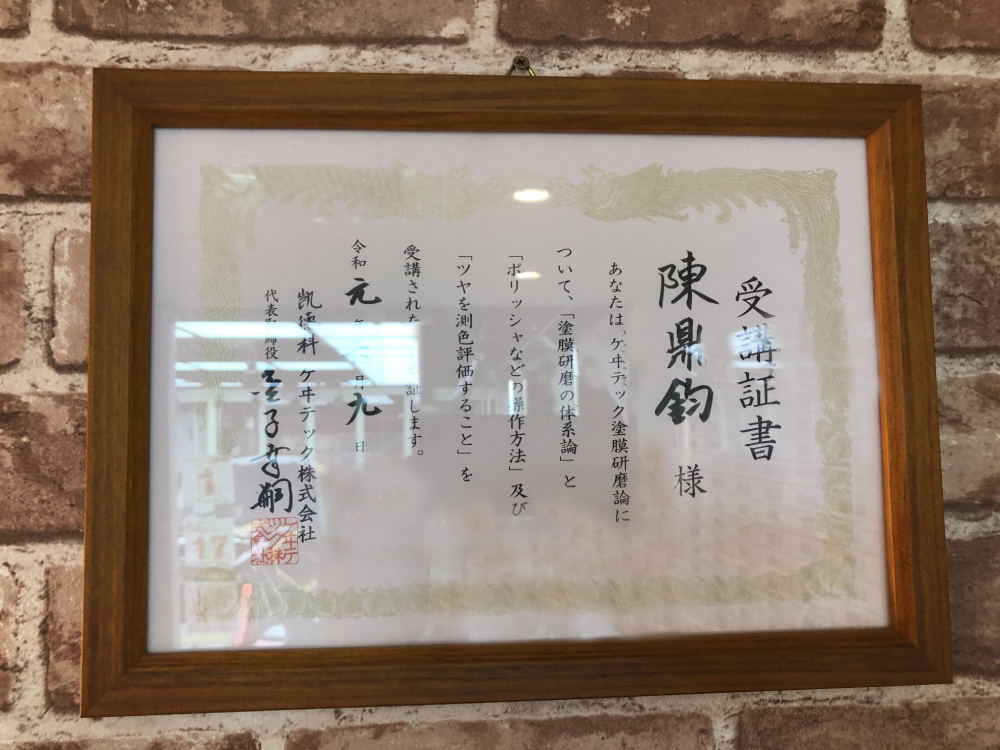 受講証書
陳鼎鈞 様
あなたは、ケヰテック塗膜研磨論に
ついて、「塗膜研磨の体系論」と
「ポリッシャなどの操作方法」及び
「ツヤを測色評価すること」を
受講された 証します。
令和 元 年 月 九 日
凱德科 ケヰテック株式会社
代表取締役